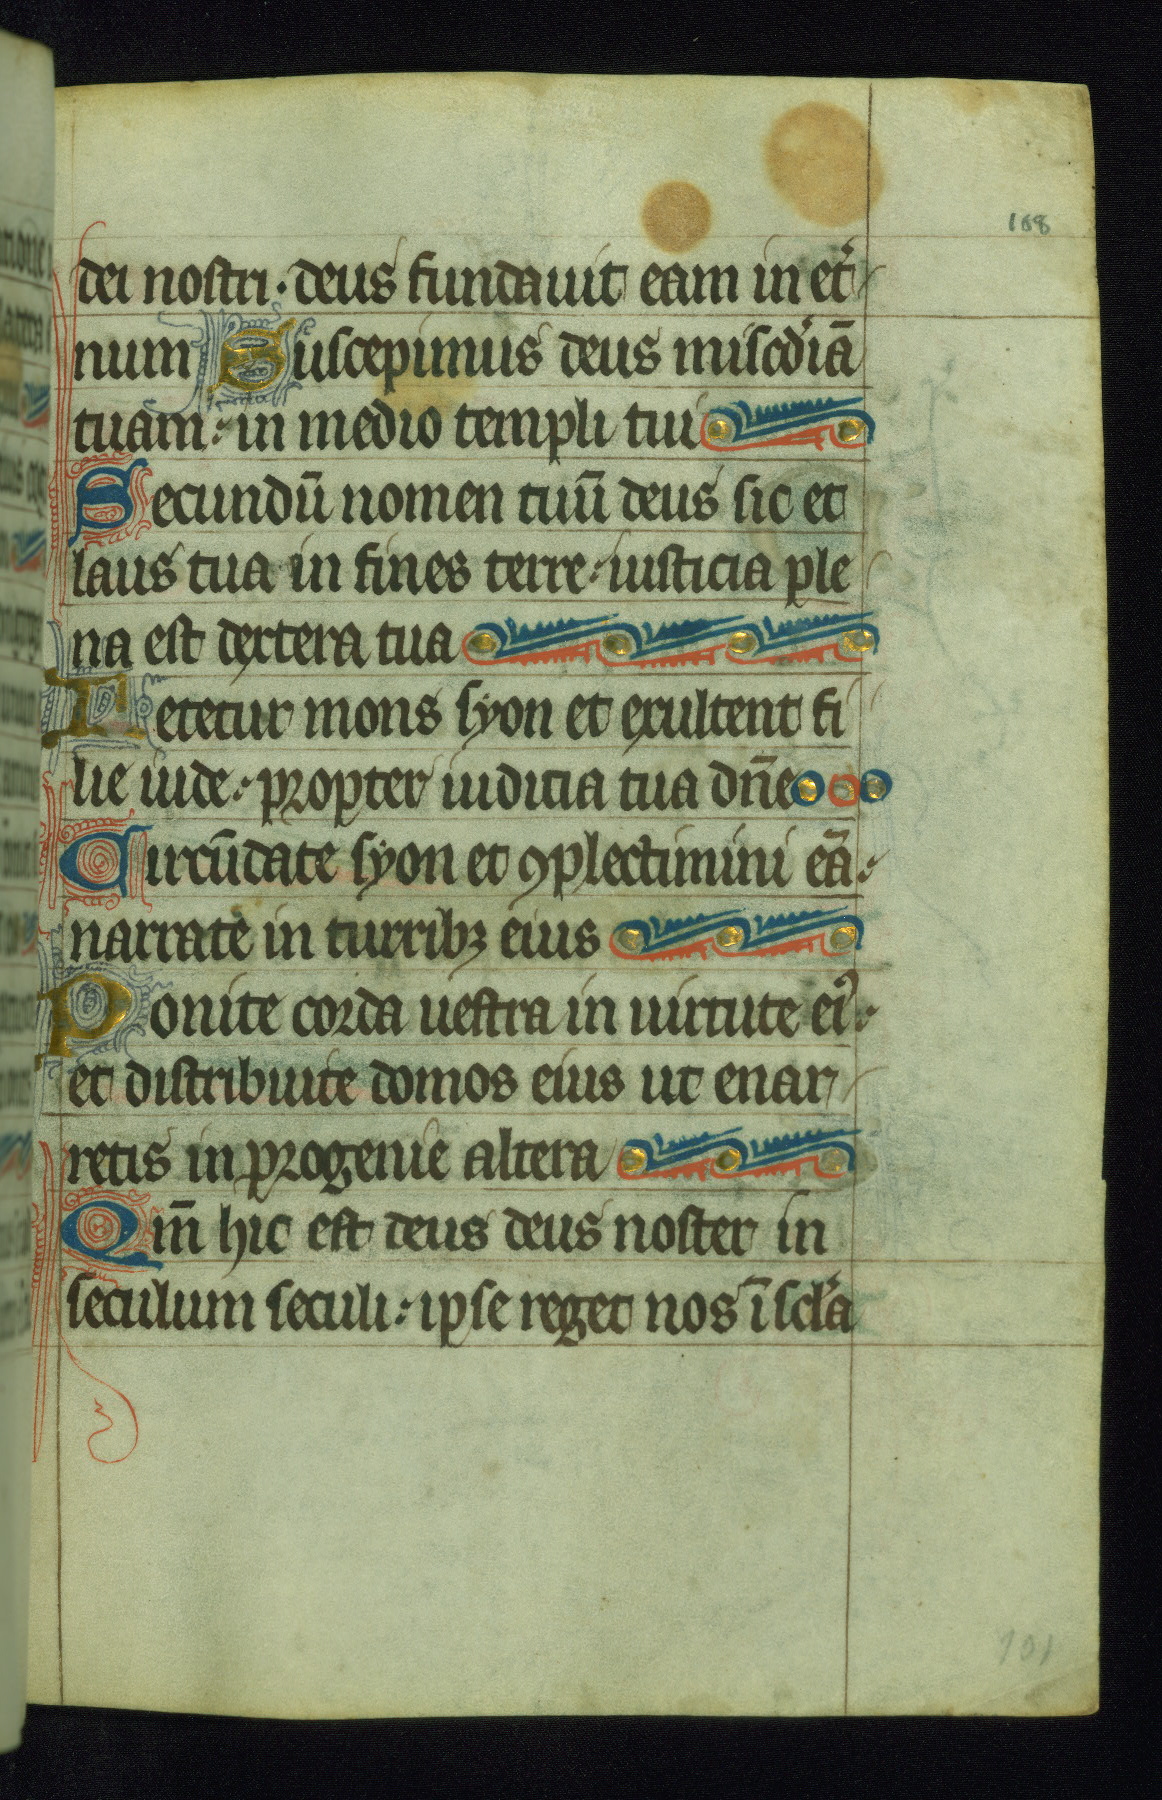 168
dei nostri · deus fundauit eam in et̾
num Suscepimus deus misc̾diā
tuam : in medio templi tui
Secundū nomen tuū deus sic et
laus tua in fines terre : iusticia ple
na est dextera tua
Letetur mons syon et exultent fi
lie iude : propter iudicia tua dn̄e
Circūdate syon et ꝯplectimini eā :
narrate in turribꝫ eius
Ponite corda uestra in uirtute eiꝰ :
et distribuite domos eius ut enar
retis in progenie altera
Qm̄ hic est deus deus noster in
seculum seculi : ipse reget nos ī scl̾a
101